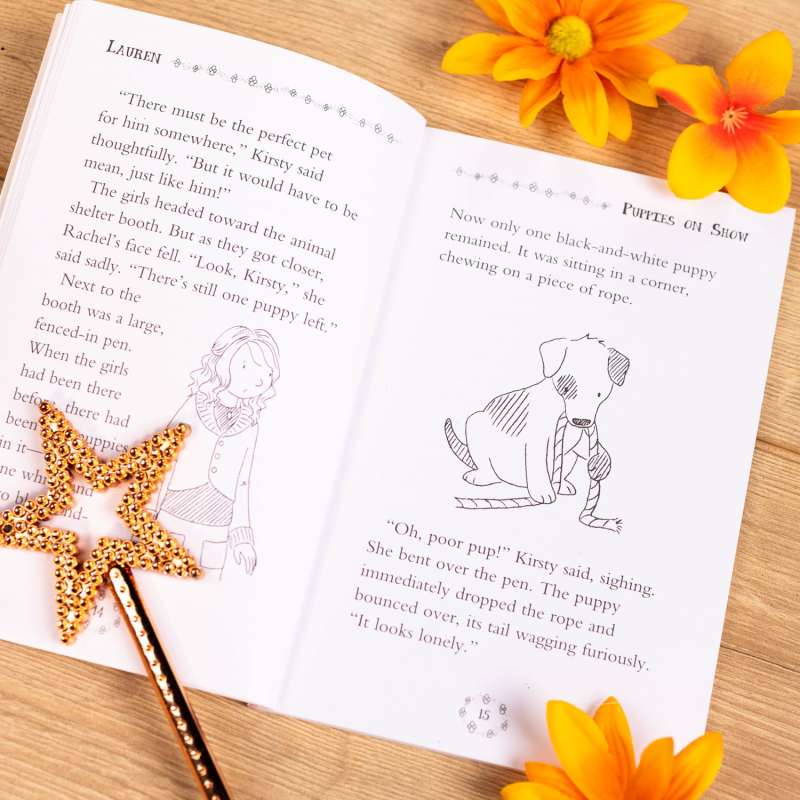 Lauren
“There must be the perfect pet
for him somewhere,” Kirsty said
thoughtfully. “But it would have to be
mean, just like him!”
The girls headed toward the animal
shelter booth. But as they got closer,
Rachel’s face fell. “Look, Kirsty,” she
said sadly. “There’s still one puppy left.”
Next to the
booth was a large,
fenced-in pen.
When the girls
had been there
before, there had
been puppies
in it—
and
14
Puppies on Show
Now only one black-and-white puppy
remained. It was sitting in a corner,
chewing on a piece of rope.
“Oh, poor pup!” Kirsty said, sighing.
She bent over the pen. The puppy
immediately dropped the rope and
bounced over, its tail wagging furiously.
“It looks lonely.”
15